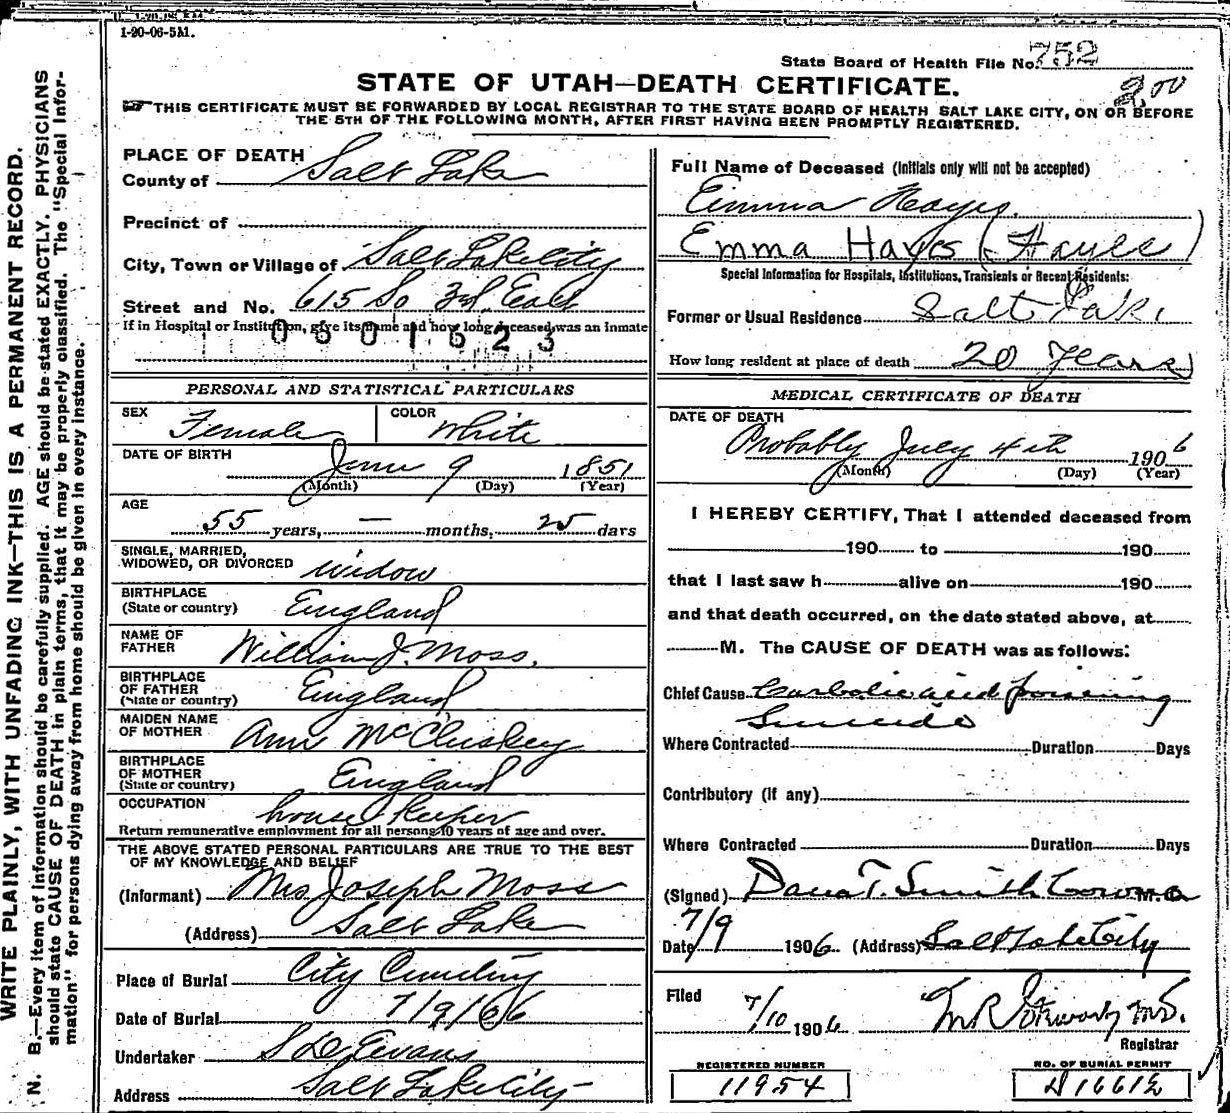 1-20-06-5M.
State Board of Health File No. 752
STATE OF UTAH—DEATH CERTIFICATE.
200
THIS CERTIFICATE MUST BE FORWARDED BY LOCAL REGISTRAR TO THE STATE BOARD OF HEALTH SALT LAKE CITY, ON OR BEFORE
THE 5TH OF THE FOLLOWING MONTH, AFTER FIRST HAVING BEEN PROMPTLY REGISTERED.
WRITE PLAINLY, WITH UNFADING INK—THIS IS A PERMANENT RECORD.
N. B.—Every item of information should be carefully supplied. AGE should be stated EXACTLY. PHYSICIANS
should state CAUSE OF DEATH in plain terms, that it may be properly classified. The "Special Infor-
mation" for persons dying away from home should be given in every instance.
PLACE OF DEATH
County of Salt Lake
Precinct of
City, Town or Village of Salt Lake City
Street and No. 615 So 3rd East
If in Hospital or Institution, give its name and how long deceased was an inmate
0601623
PERSONAL AND STATISTICAL PARTICULARS
SEX Female COLOR White
DATE OF BIRTH June 9 1851
(Month) (Day) (Year)
AGE
55 years, — months, 25 days
SINGLE, MARRIED,
WIDOWED, OR DIVORCED widow
BIRTHPLACE
(State or country) England
NAME OF
FATHER William J. Moss.
BIRTHPLACE
OF FATHER
(State or country) England
MAIDEN NAME
OF MOTHER Ann McCluskey
BIRTHPLACE
OF MOTHER
(State or country) England
OCCUPATION house keeper
Return remunerative employment for all persons 10 years of age and over.
THE ABOVE STATED PERSONAL PARTICULARS ARE TRUE TO THE BEST
OF MY KNOWLEDGE AND BELIEF
(Informant) Mrs Joseph Moss
(Address) Salt Lake
Place of Burial City Cemetery
Date of Burial 7/9/06
Undertaker S D Evans
Address Salt Lake City
Full Name of Deceased (Initials only will not be accepted)
Emma Hayes
Emma Hayes (Hayes)
Special Information for Hospitals, Institutions, Transients or Recent Residents:
Former or Usual Residence Salt Lake
How long resident at place of death 20 Years
MEDICAL CERTIFICATE OF DEATH
DATE OF DEATH
Probably July 4th 1906
(Month) (Day) (Year)
I HEREBY CERTIFY, That I attended deceased from
190 to 190
that I last saw h alive on 190
and that death occurred, on the date stated above, at
M. The CAUSE OF DEATH was as follows:
Chief Cause Carbolic acid poisoning
Suicide
Where Contracted Duration Days
Contributory (if any)
Where Contracted Duration Days
(Signed) Dana T. Smith Coroner M.D.
Date 7/9 1906 (Address) Salt Lake City
Filed 7/10 1906 M.D.
Registrar
REGISTERED NUMBER
11954
NO. OF BURIAL PERMIT
16612